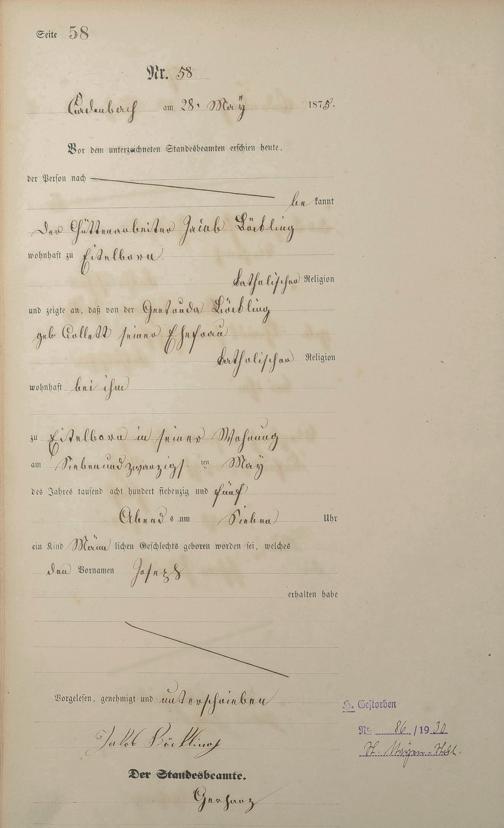 Seite 58
Nr. 58
Cadenbach am 28. May 1875.
Vor dem unterzeichneten Standesbeamten erschien heute,
der Person nach
be kannt
der Hüttenarbeiter Jacob Böckling
wohnhaft zu Eitelborn
katholischer Religion
und zeigte an, daß von der Gertruda Böckling
geb Collett seiner Ehefrau
katholischer Religion
wohnhaft bei ihm
zu Eitelborn in seiner Wohnung
am Siebenundzwanzigs ten May
des Jahres tausend acht hundert siebenzig und fünf
Abend s um Sieben Uhr
ein Kind Männ lichen Geschlechts geboren worden sei, welches
den Vornamen Joseph
erhalten habe
Vorgelesen, genehmigt und unterschrieben
Jakob Böckling
Der Standesbeamte.
Gerharz
Gestorben
Nr. 86 / 1930